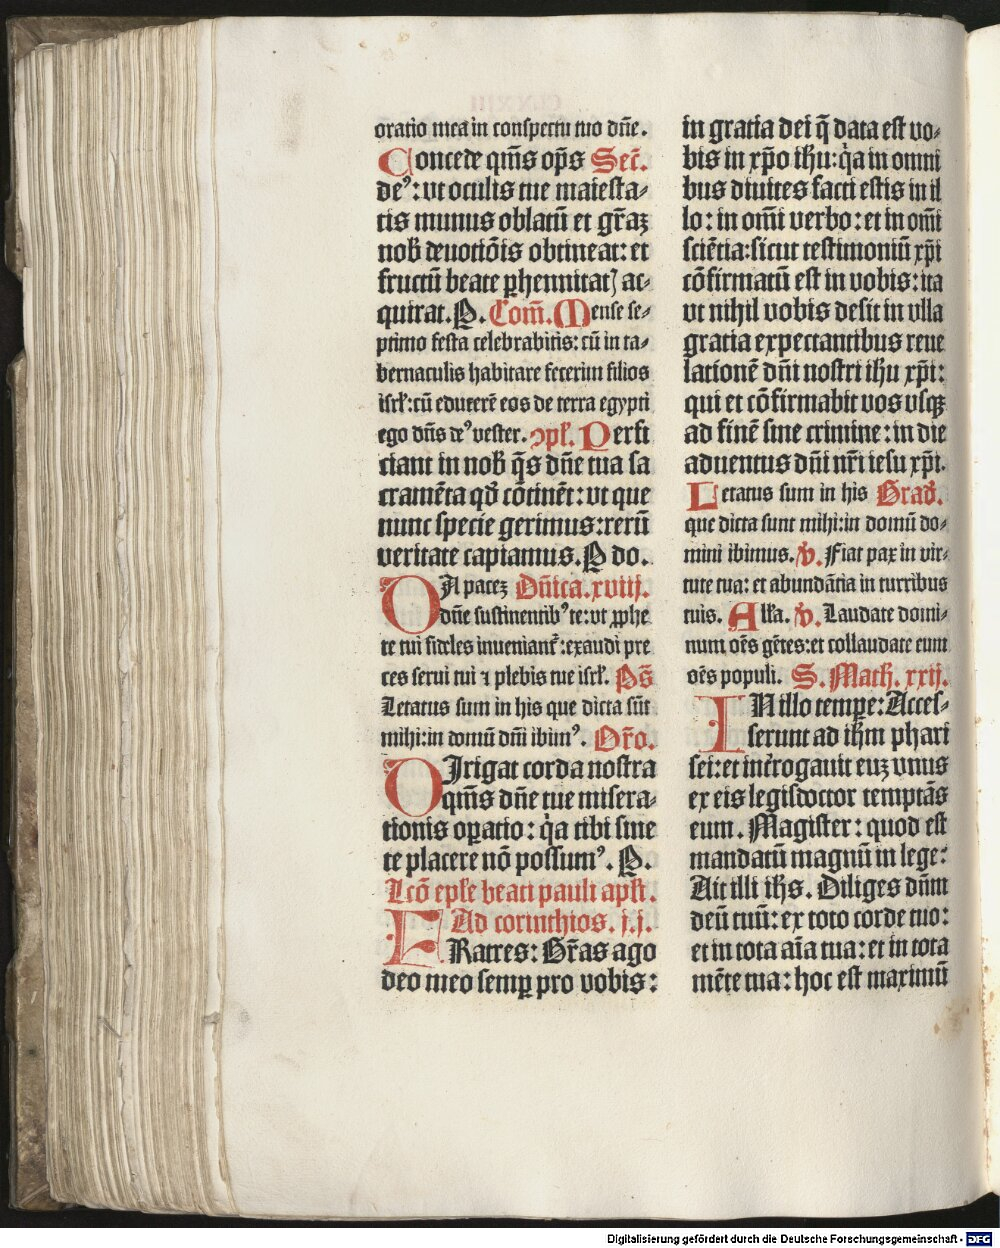 oratio mea in conspectu tuo dñe.
Concede qm̄s op̄s Sec̄.
de⁹: vt oculis tue maiesta⸗
tis munus oblatū et gr̄aꝫ
nob̄ deuotiōis obtineat: et
fructū beate ꝑhennitatꝭ ac⸗
quirat. P. Com̄. Mense se⸗
ptimo festa celebrabitis: cū in ta⸗
bernaculis habitare fecerim filios
isrl̄: cū educerē eos de terra egypti
ego dn̄s de⁹ vester. ꝯpl̄. Perfi
ciant in nob̄ q̄s dn̄e tua sa
cramēta qd̄ cōtinēt: vt que
nunc specie gerimus: rerū
veritate capiamus. P do.
DA paceꝫ Dn̄ica. xviij.
dn̄e sustinentib⁹ te: vt ꝓphe
te tui fideles inueniant᷑: exaudi pre
ces serui tui ⁊ plebis tue isrl̄. Ps̄
Letatus sum in his que dicta sūt
mihi: in domū dn̄i ibim⁹. Or̄o.
DIrigat corda nostra
qm̄s dn̄e tue misera⸗
tionis oꝑatio: q̇a tibi sine
te placere nō possum⁹. P.
Lcō epl̄e beati pauli apl̄i.
Ad corinthios. j.j.
FRatres: Gr̄as ago
deo meo semꝑ pro vobis:
in gratia dei q̄ data est vo⸗
bis in xp̄o ih̄u: q̇a in omni
bus diuites facti estis in il
lo: in om̄i verbo: et in om̄i
sciētia: sicut testimoniū xp̄i
cōfirmatū est in vobis: ita
vt nihil vobis desit in vlla
gratia expectantibus reue
lationē dn̄i nostri ih̄u xp̄i:
qui et cōfirmabit vos vsqꝫ
ad finē sine crimine: in die
aduentus dn̄i nr̄i iesu xp̄i.
Letatus sum in his Grad̄.
que dicta sunt mihi: in domū do⸗
mini ibimus. V̄. Fiat pax in vir⸗
tute tua: et abundātia in turribus
tuis. All̄a. V̄. Laudate domi⸗
num oēs gētes: et collaudate eum
oēs populi. S. Math. xxij.
IN illo temꝑe: Acces⸗
serunt ad ih̄m phari
sei: et inẗrogauit euꝫ vnus
ex eis legisdoctor temptās
eum. Magister: quod est
mandatū magnū in lege:
Ait illi ih̄s. Diliges dn̄m
deū tuū: ex toto corde tuo:
et in tota aīa tua: et in tota
mēte tua: hoc est maximū
Digitalisierung gefördert durch die Deutsche Forschungsgemeinschaft - DFG